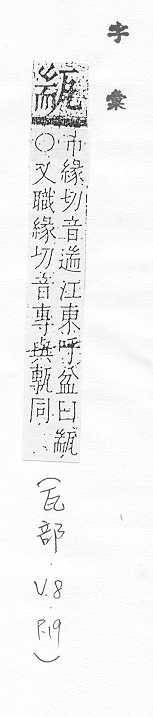 字彙
㼷
市緣切音遄江東呼盆曰㼷
○又職緣切音專與甎同
(瓦部.V.8 P.19)